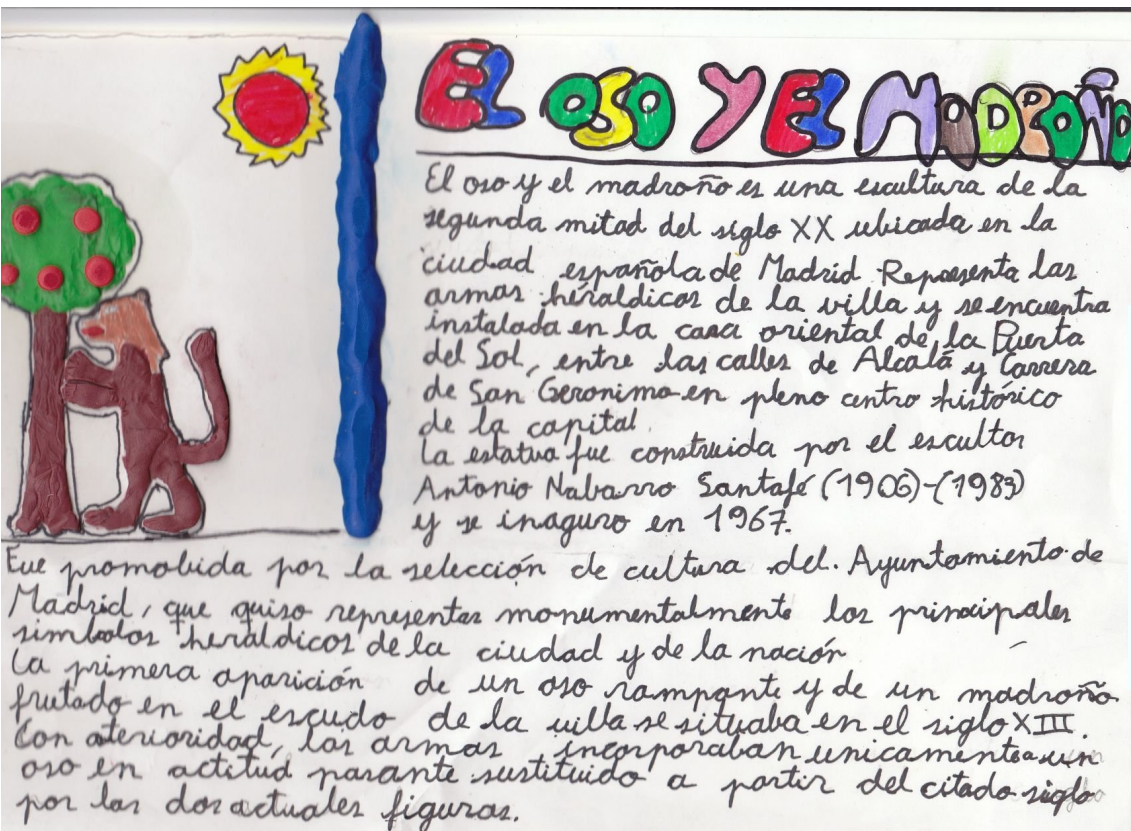 EL OSO Y EL MADROÑO
El oso y el madroño es una escultura de la
segunda mitad del siglo XX ubicada en la
ciudad española de Madrid. Representa las
armas héraldicas de la villa y se encuentra
instalada en la cara oriental de la Puerta
del Sol, entre las calles de Alcalá y Carrera
de San Geronimo en pleno centro histórico
de la capital.
La estatua fue construida por el escultor
Antonio Nabarro Santafé (1906)-(1983)
y se inaguro en 1967.
Fue promobida por la selección de cultura del. Ayuntamiento de
Madrid, que quiso representar monumentalmente los principales
simbolos heraldicos de la ciudad y de la nación
La primera aparición de un oso rampante y de un madroño
frutado en el escudo de la villa se situaba en el siglo XIII.
Con aterioridad, las armas incorporaban unicamente a un
oso en actitud pasante sustituido a partir del citado siglo
por las dos actuales figuras.